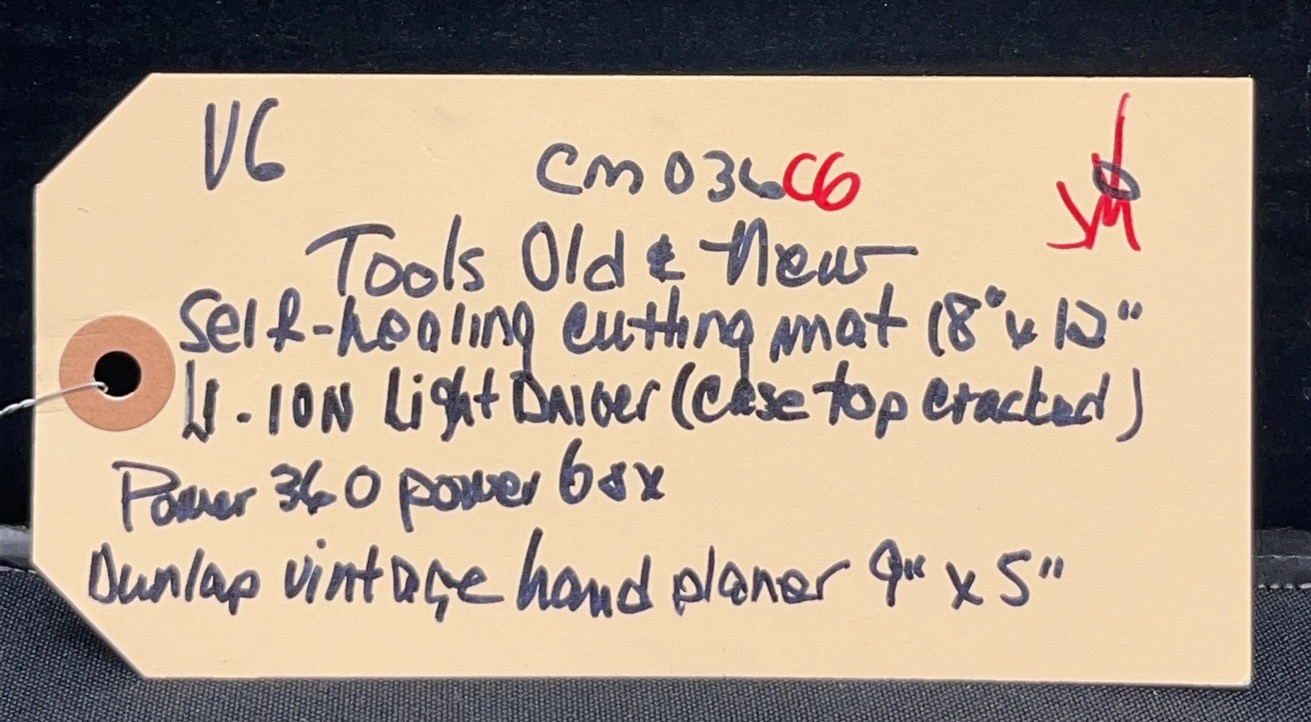 V6
Cm036C6
Tools Old & New
Self-healing cutting mat 18" x 12"
Li-ION Light Driver (Case top cracked)
Power 360 power box
Dunlap vintage hand planer 9" x 5"